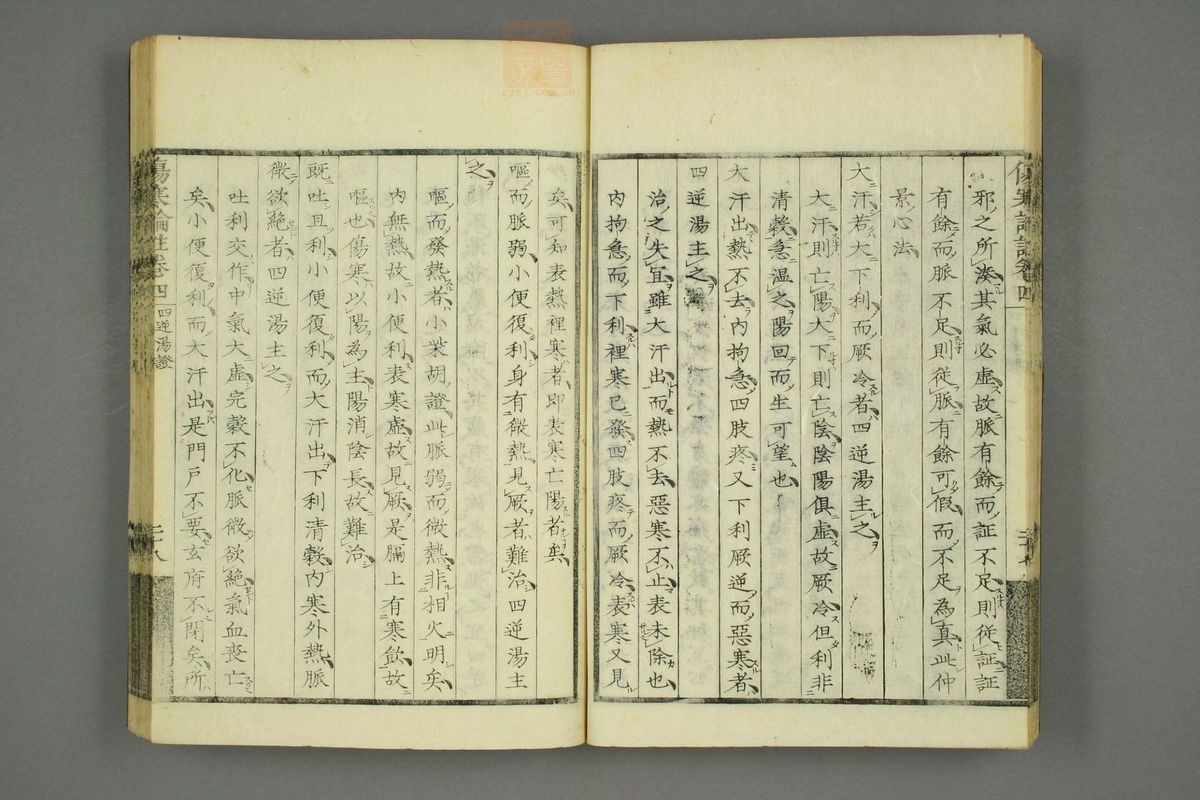 邪之所湊其氣必虛故脈有餘而証不足則從証証
有餘而脈不足則從脈有餘可假而不足為真此仲
景心法
大汗若大下利而厥冷者四逆湯主之
大汗則亡陽大下則亡陰陰陽俱虛故厥冷但利非
清穀急温之陽回而生可望也
大汗出熱不去内拘急四肢疼又下利厥逆而惡寒者
四逆湯主之
治之失宜雖大汗出而熱不去惡寒不止表未除也
内拘急而下利裡寒已發四肢疼而厥冷表寒又見
矣可知表熱裡寒者即表寒亡陽者矣
嘔而脈弱小便復利身有微熱見厥者難治四逆湯主
之
嘔而發熱者小柴胡證此脈弱而微熱非相火明矣
内無熱故小便利表寒虛故見厥是膈上有寒飲故
嘔也傷寒以陽為主陽消陰長故難治
既吐且利小便復利而大汗出下利清穀内寒外熱脈
微欲絕者四逆湯主之
吐利交作中氣大虛完穀不化脈微欲絕氣血喪亡
矣小便復利而大汗出是門戶不要玄府不閉矣所
傷寒論註卷四
四逆湯證
二十八